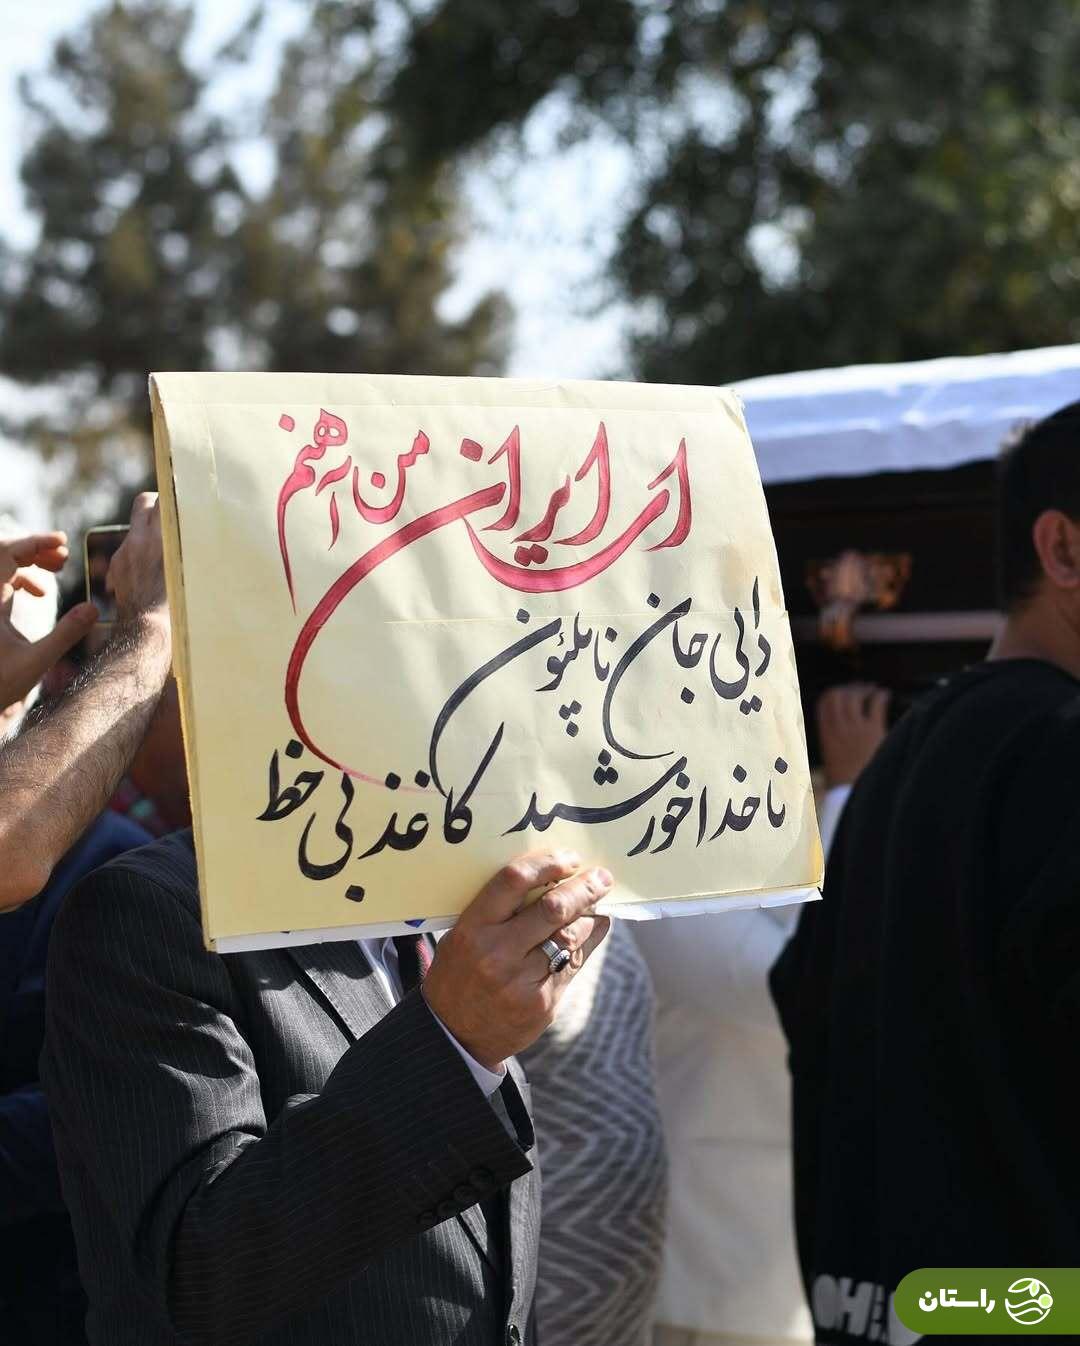 ای ایران من آهنم
دایی جان ناپلئون
ناخدا خورشید کاغذ بی خط
راستان